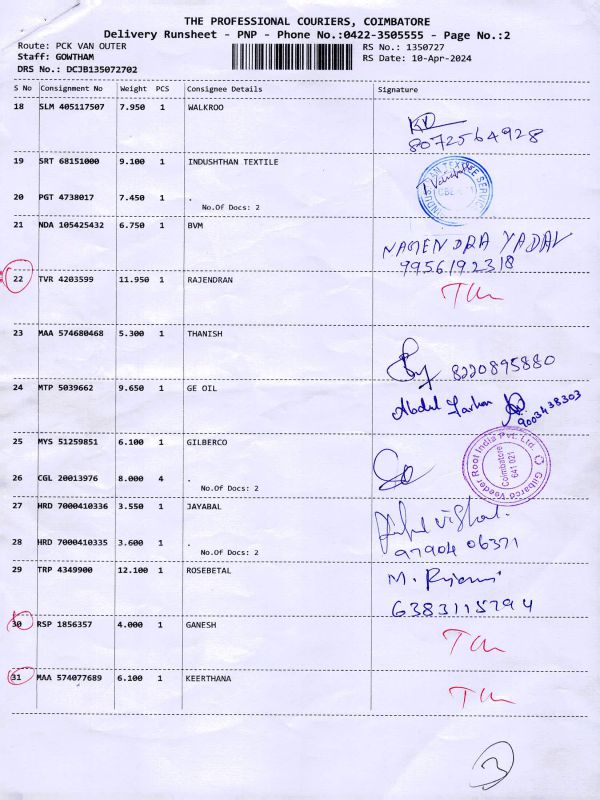 THE PROFESSIONAL COURIERS, COIMBATORE
Delivery Runsheet - PNP - Phone No.:0422-3505555 - Page No.:2
Route: PCK VAN OUTER
RS No.: 1350727
Staff: GOWTHAM
RS Date: 10-Apr-2024
DRS No.: DCJB135072702
S No Consignment No Weight PCS Consignee Details Signature
18 SLM 405117507 7.950 1 WALKROO
8072564928
19 SRT 68151000 9.100 1 INDUSHTHAN TEXTILE
20 PGT 4738017 7.450 1 .
No.Of Docs: 2
21 NDA 105425432 6.750 1 BVM
NAGENDRA YADAV
9956192318
22 TVR 4203599 11.950 1 RAJENDRAN
23 MAA 574680468 5.300 1 THANISH
8220895880
24 MTP 5039662 9.650 1 GE OIL
Abdul
9003438303
25 MYS 51259851 6.100 1 GILBERCO
Gilbarco Veeder Root India Pvt. Ltd.
Coimbatore
641 021
26 CGL 20013976 8.000 4 .
No.Of Docs: 2
27 HRD 7000410336 3.550 1 JAYABAL
28 HRD 7000410335 3.600 1 .
No.Of Docs: 2
97904 06371
29 TRP 4349900 12.100 1 ROSEBETAL
6383115794
30 RSP 1856357 4.000 1 GANESH
31 MAA 574077689 6.100 1 KEERTHANA
3